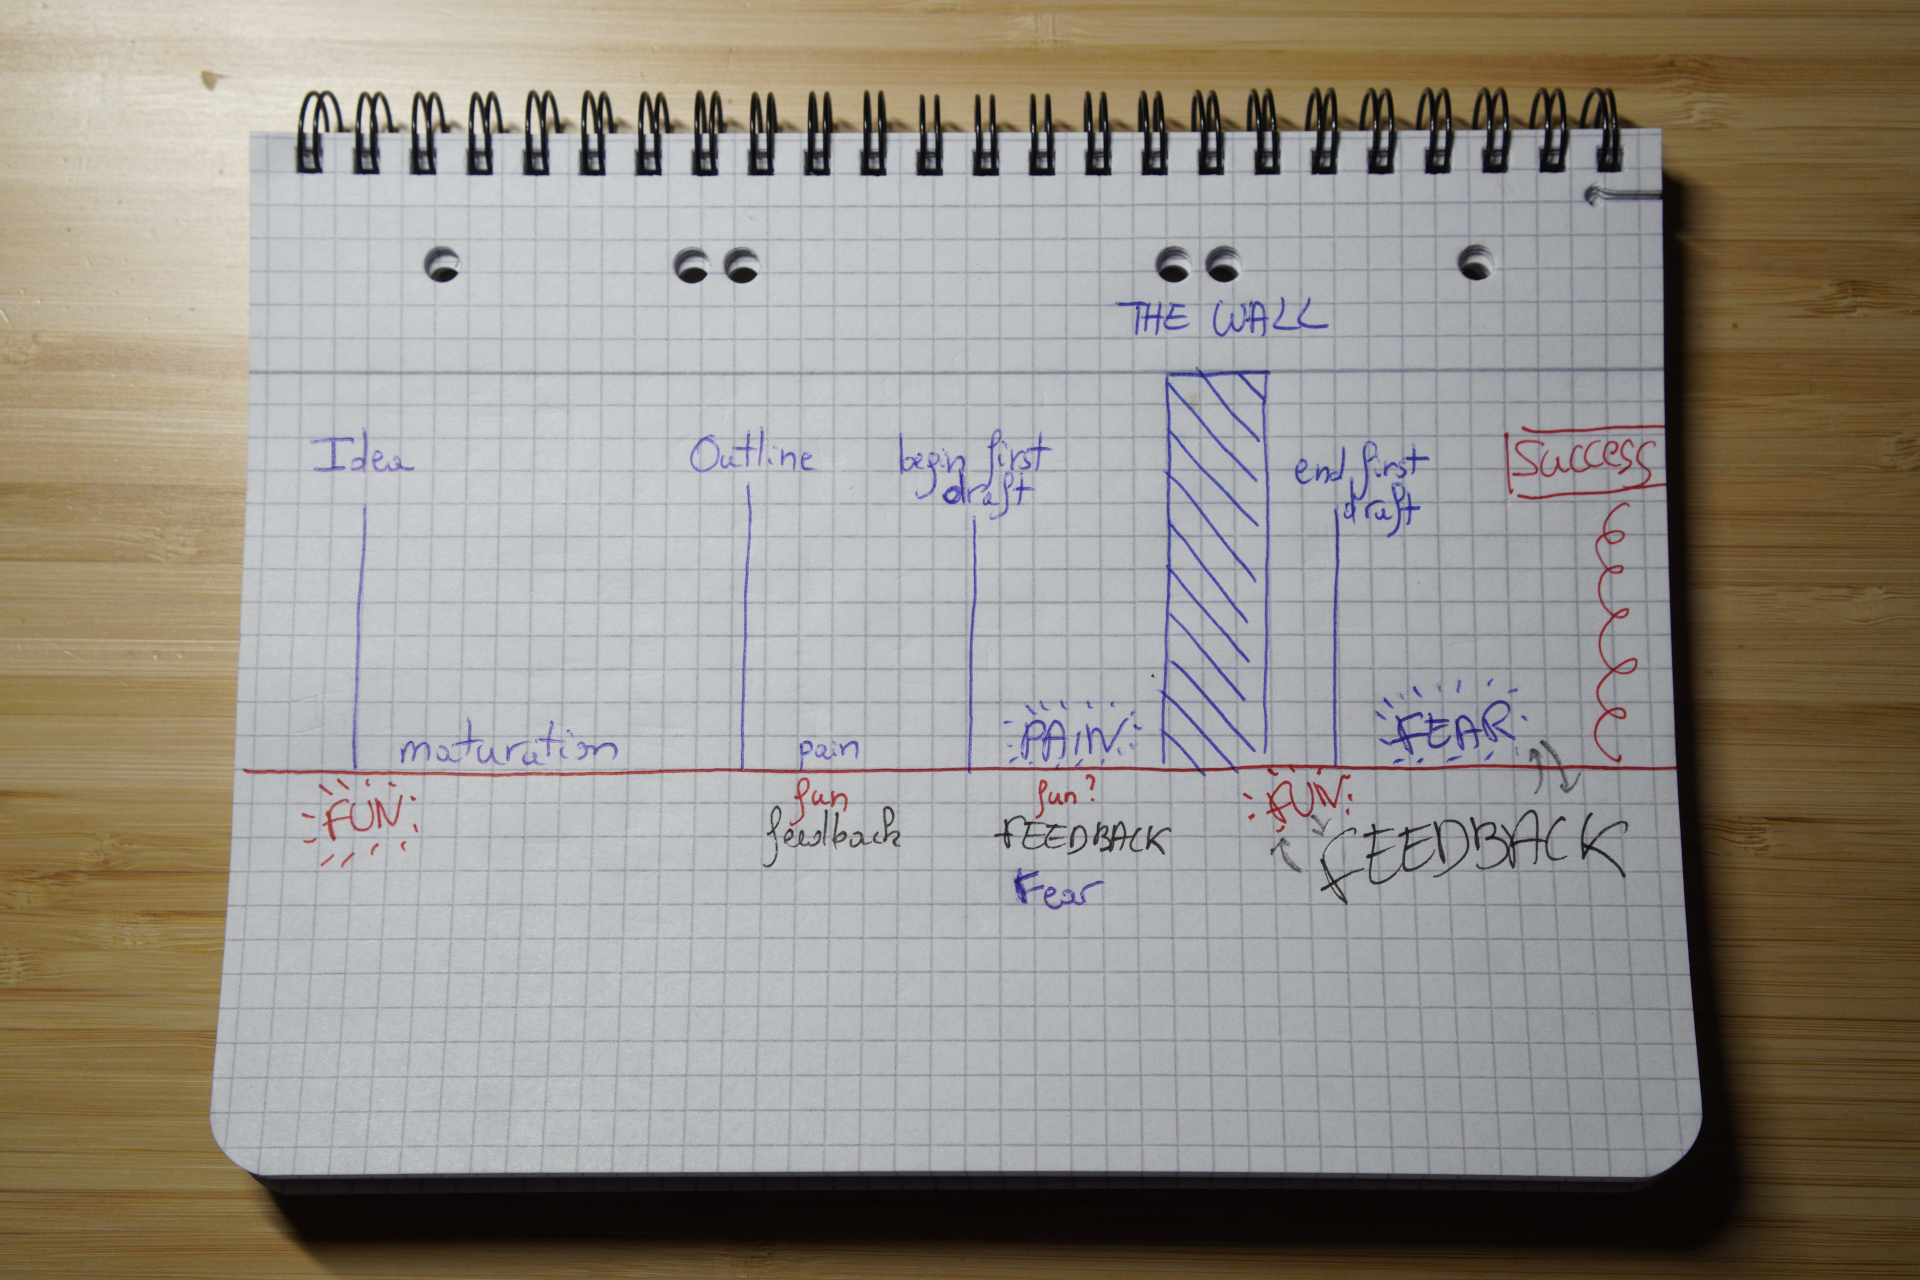 THE WALL
Idea
Outline
begin first
draft
end first
draft
Success
maturation
pain
PAIN
FEAR
FUN
fun
feedback
fun?
FEEDBACK
Fear
FUN
FEEDBACK